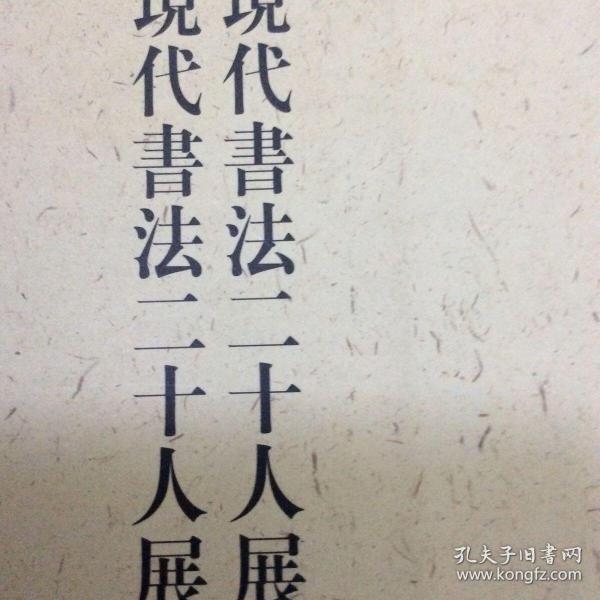 現代書法二十人展
現代書法二十人展
孔夫子旧書网
www.kongfz.com